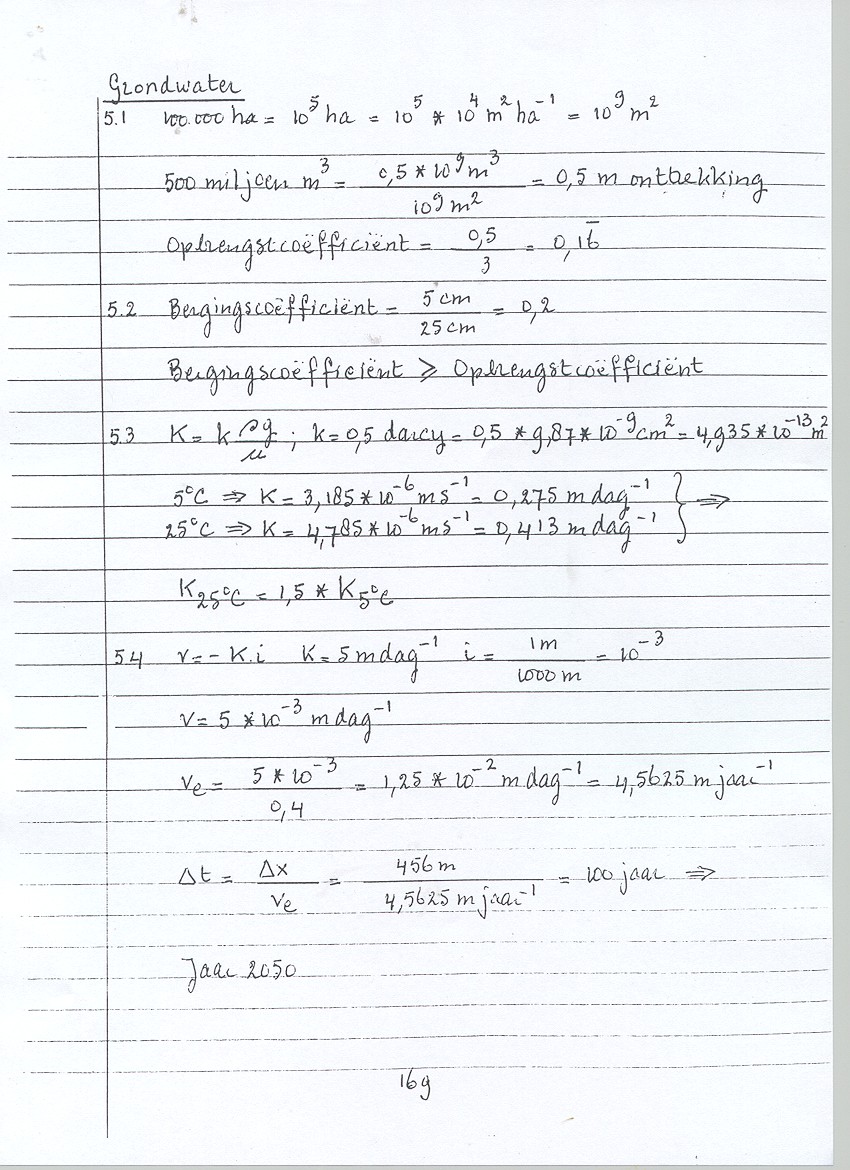 Grondwater
5.1 100.000 ha = 10^5 ha = 10^5 * 10^4 m^2 ha^-1 = 10^9 m^2
500 miljoen m^3 = 0,5 * 10^9 m^3 / 10^9 m^2 = 0,5 m onttrekking
Opbrengstcoëfficiënt = 0,5 / 3 = 0,16̅
5.2 Bergingscoëfficiënt = 5 cm / 25 cm = 0,2
Bergingscoëfficiënt ⩾ Opbrengstcoëfficiënt
5.3 K = k ρg / μ ; k = 0,5 darcy = 0,5 * 9,87 * 10^-9 cm^2 = 4,935 * 10^-13 m^2
5°C ⇒ K = 3,185 * 10^-6 m s^-1 = 0,275 m dag^-1 } ⇒
25°C ⇒ K = 4,785 * 10^-6 m s^-1 = 0,413 m dag^-1
K25°C = 1,5 * K5°C
5.4 v = - K.i K = 5 m dag^-1 i = 1 m / 1000 m = 10^-3
v = 5 * 10^-3 m dag^-1
ve = 5 * 10^-3 / 0,4 = 1,25 * 10^-2 m dag^-1 = 4,5625 m jaar^-1
Δt = Δx / ve = 456 m / 4,5625 m jaar^-1 = 100 jaar ⇒
Jaar 2050
169